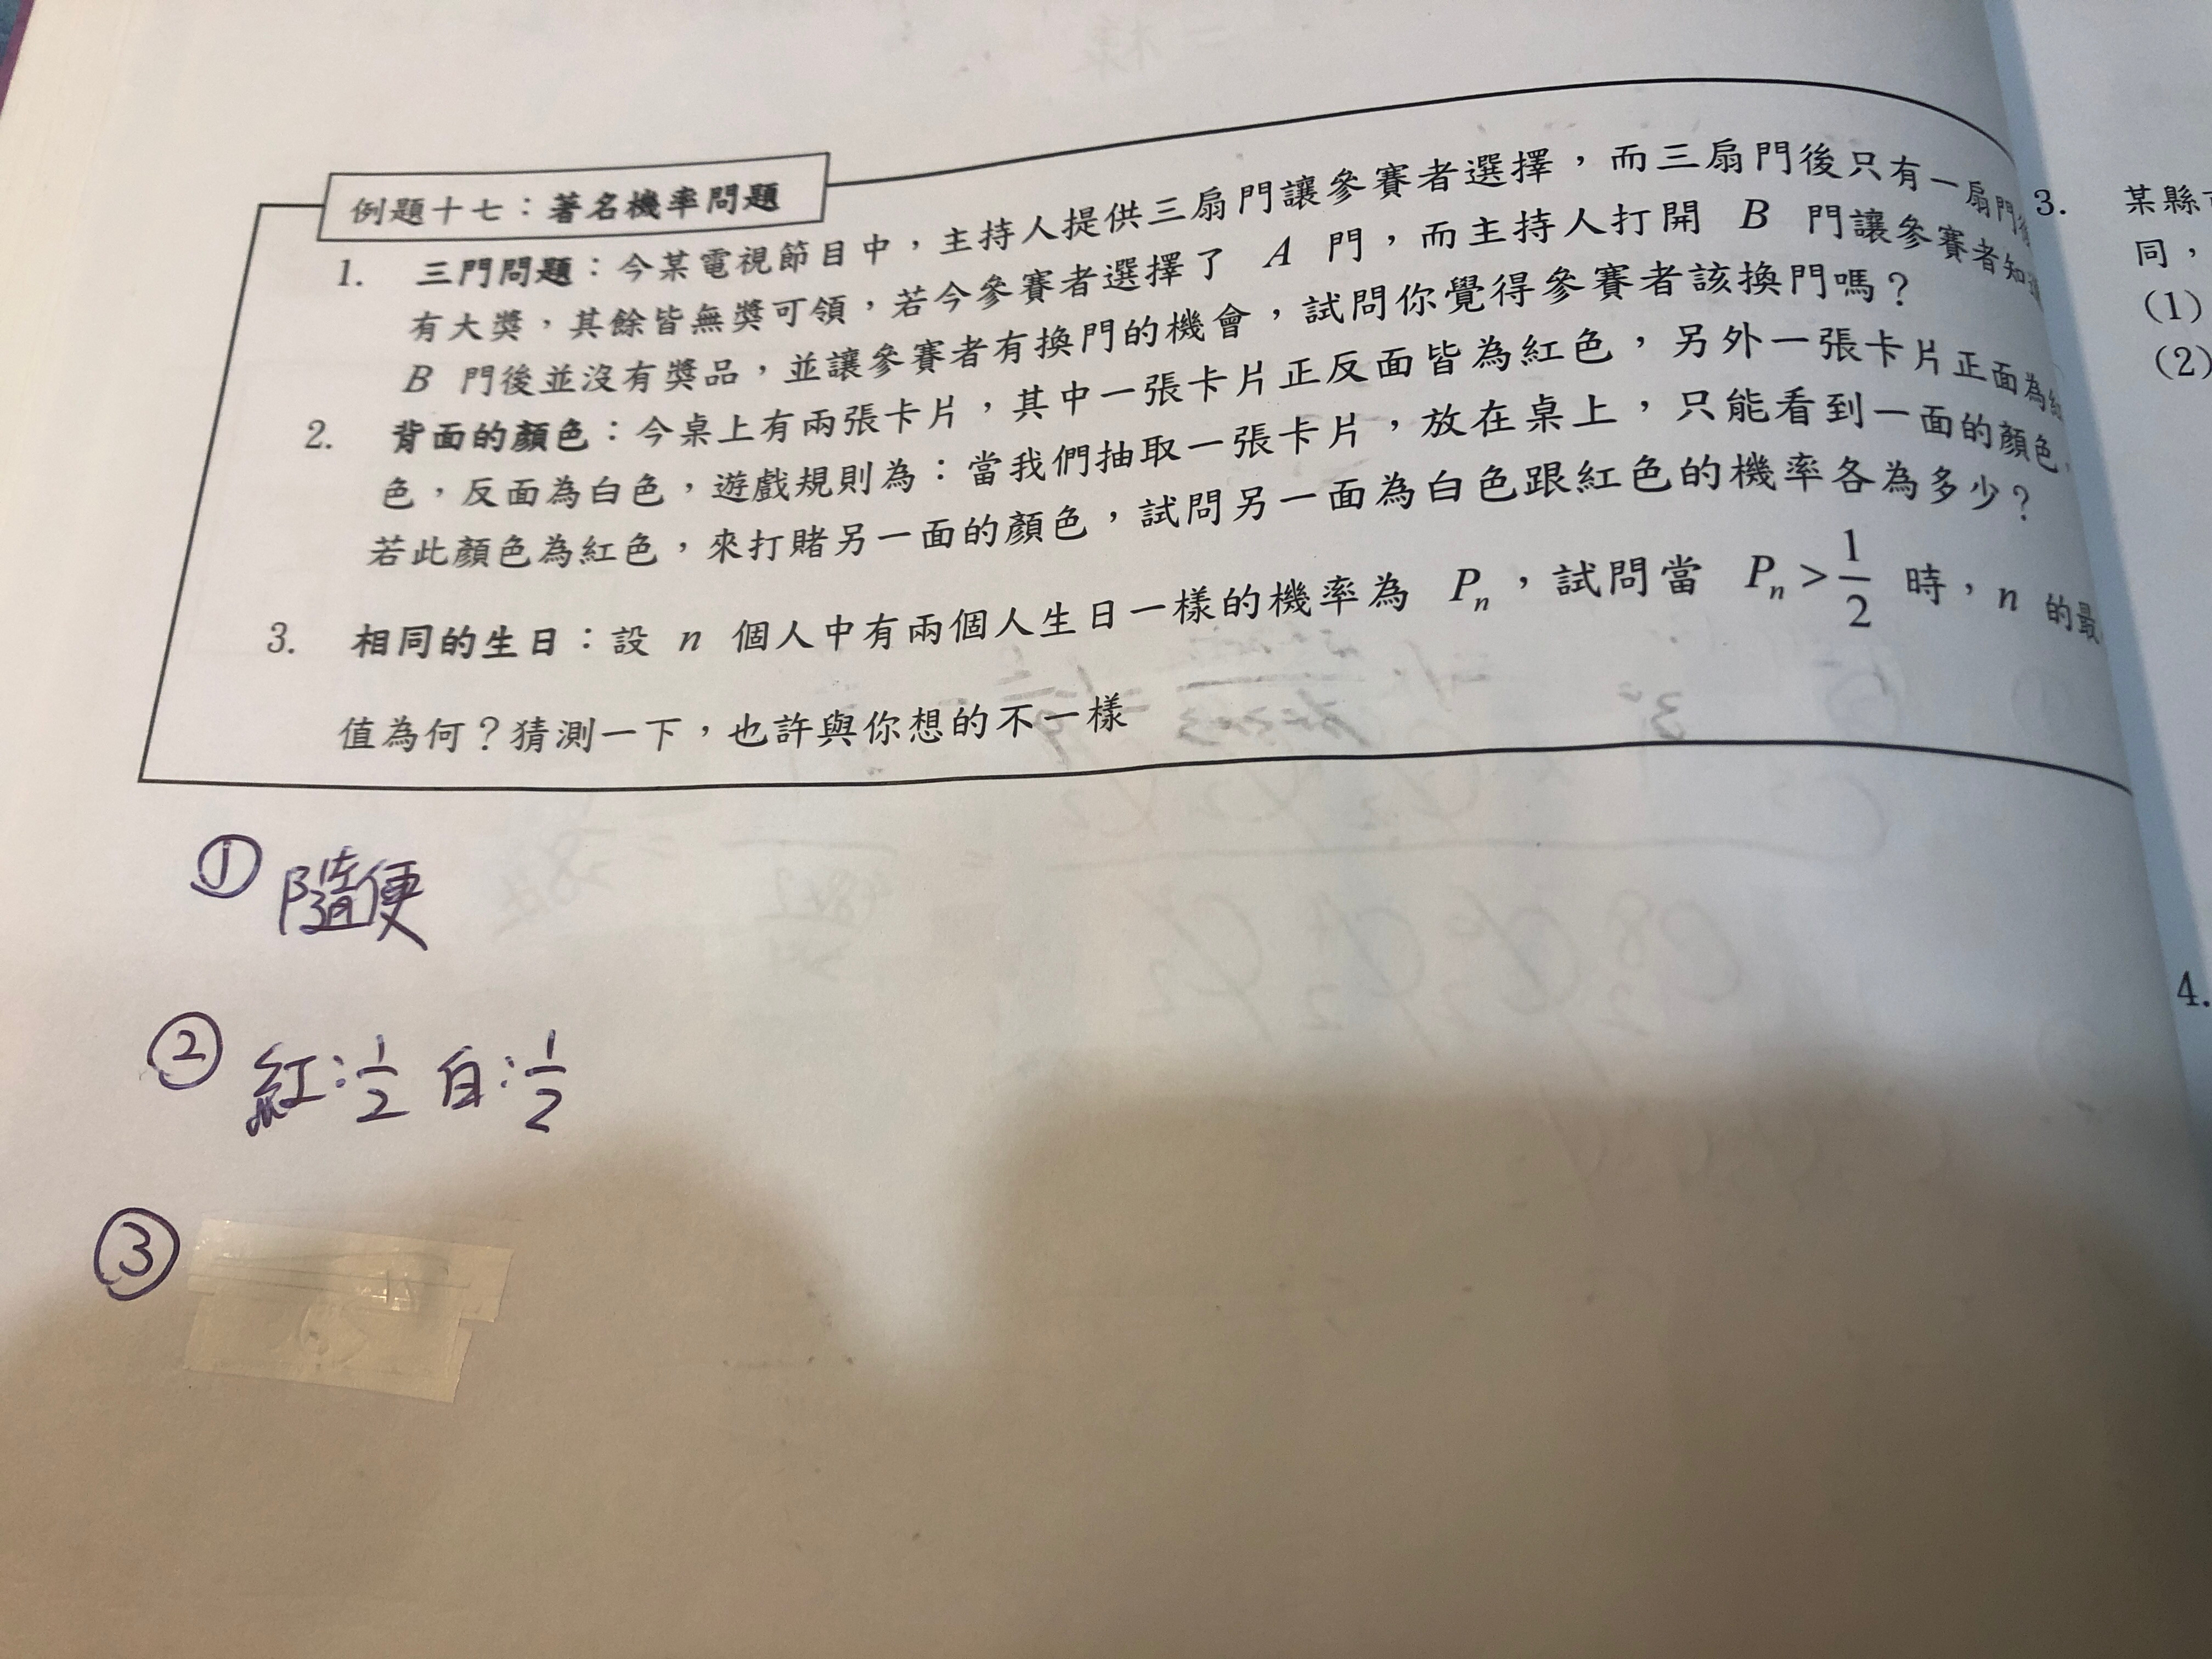 例題十七：著名機率問題
1. 三門問題：今某電視節目中，主持人提供三扇門讓參賽者選擇，而三扇門後只有一扇門後
有大獎，其餘皆無獎可領，若今參賽者選擇了 A 門，而主持人打開 B 門讓參賽者知道
B 門後並沒有獎品，並讓參賽者有換門的機會，試問你覺得參賽者該換門嗎？
2. 背面的顏色：今桌上有兩張卡片，其中一張卡片正反面皆為紅色，另外一張卡片正面為紅
色，反面為白色，遊戲規則為：當我們抽取一張卡片，放在桌上，只能看到一面的顏色，
若此顏色為紅色，來打賭另一面的顏色，試問另一面為白色跟紅色的機率各為多少？
3. 相同的生日：設 n 個人中有兩個人生日一樣的機率為 Pn，試問當 Pn > 1/2 時，n 的最
值為何？猜測一下，也許與你想的不一樣
① 隨便
② 紅：1/2 白：1/2
③
3. 某縣
同，
(1)
(2)
4.